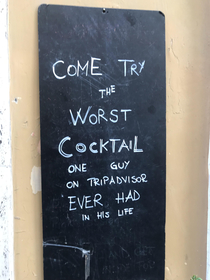 COME TRY
THE
WORST
COCKTAIL
ONE GUY
ON TRIPADVISOR
EVER HAD
IN HIS LIFE